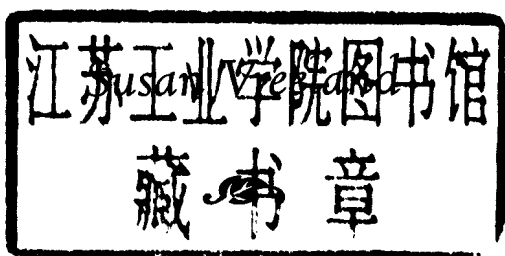 江苏工业学院图书馆
Susan Vreeland
藏书章